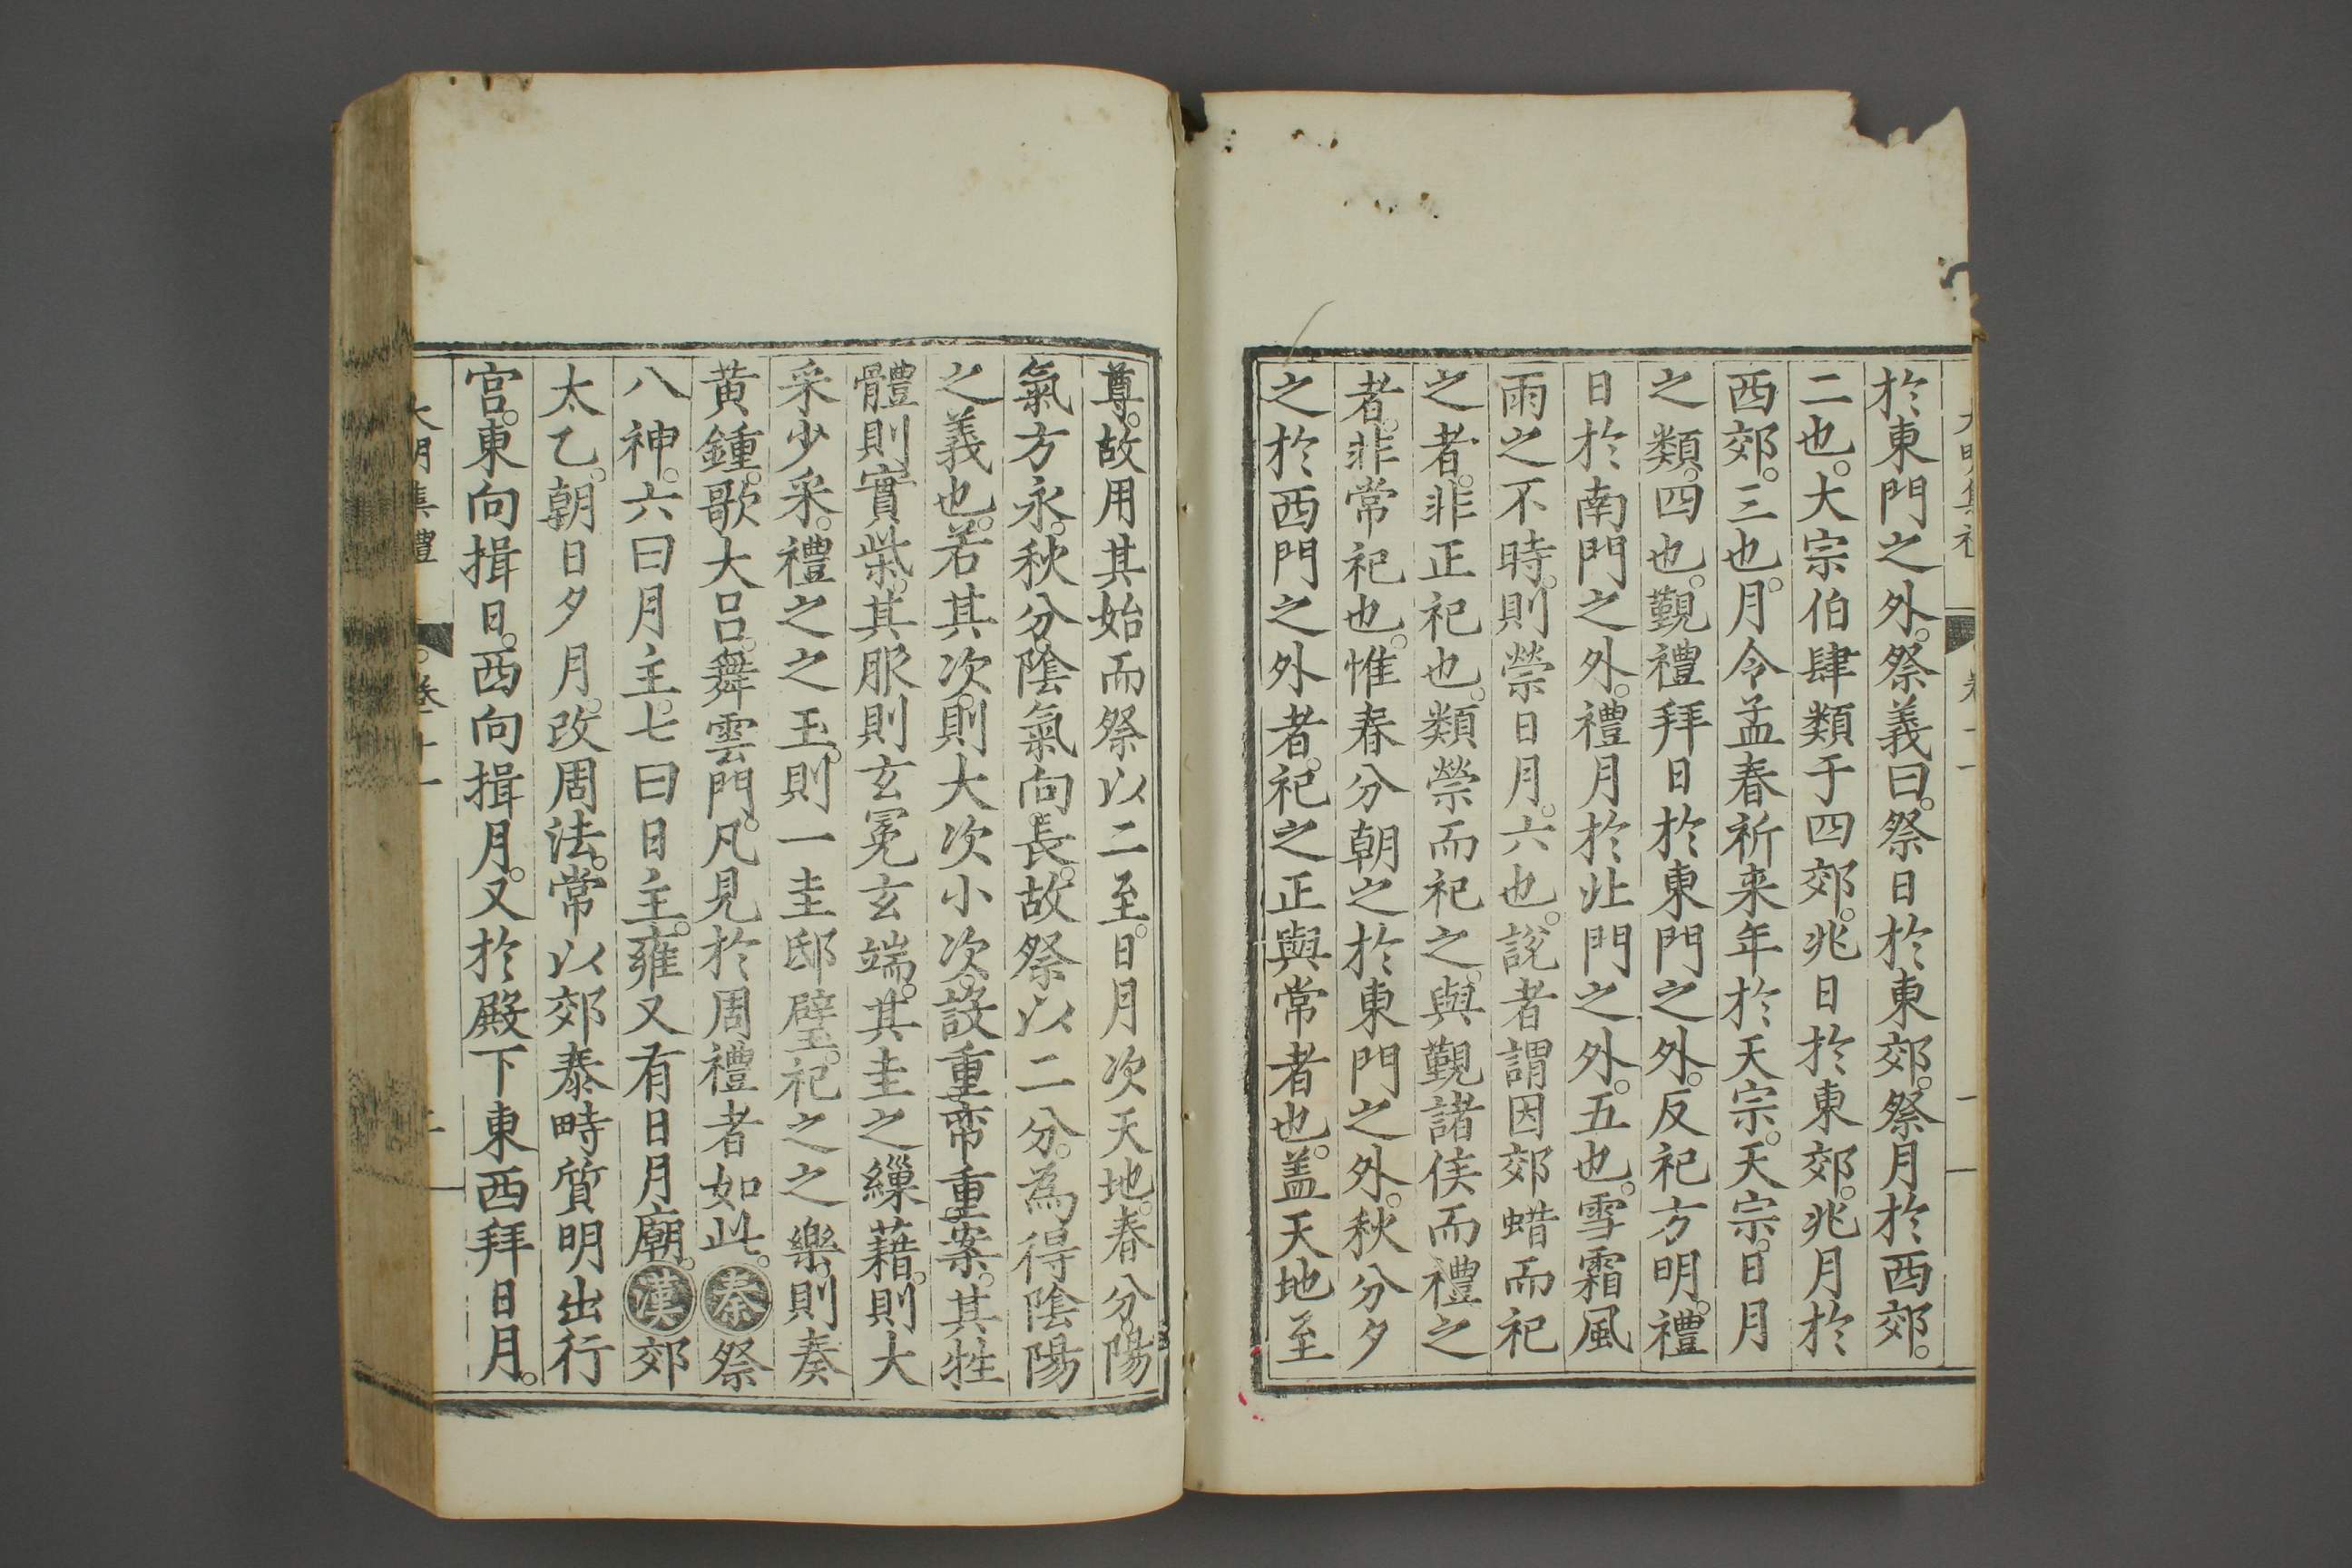 於東門之外。祭義曰。祭日於東郊。祭月於西郊。
二也。大宗伯肆類于四郊。兆日於東郊。兆月於
西郊。三也。月令孟春祈来年於天宗。天宗。日月
之類。四也。覲禮拜日於東門之外。反祀方明。禮
日於南門之外。禮月於北門之外。五也。雪霜風
雨之不時。則禜日月。六也。說者謂因郊蜡而祀
之者。非正祀也。類禜而祀之。與覲諸侯而禮之
者。非常祀也。惟春分朝之於東門之外。秋分夕
之於西門之外者。祀之正與常者也。盖天地至
尊。故用其始而祭以二至。日月次天地。春分陽
氣方永。秋分陰氣向長。故祭以二分。為得陰陽
之義也。若其次。則大次小次。設重帟重案。其牲
體則實柴。其服則玄冕玄端。其圭之繅藉。則大
采少采。禮之之玉。則一圭邸璧。祀之之樂。則奏
黄鍾。歌大呂。舞雲門。凡見於周禮者如此。秦祭
八神。六曰月主。七曰日主。雍又有日月廟。漢郊
太乙。朝日夕月。改周法。常以郊泰畤質明出行
宫。東向揖日。西向揖月。又於殿下東西拜日月。
大明集禮 卷十一 二